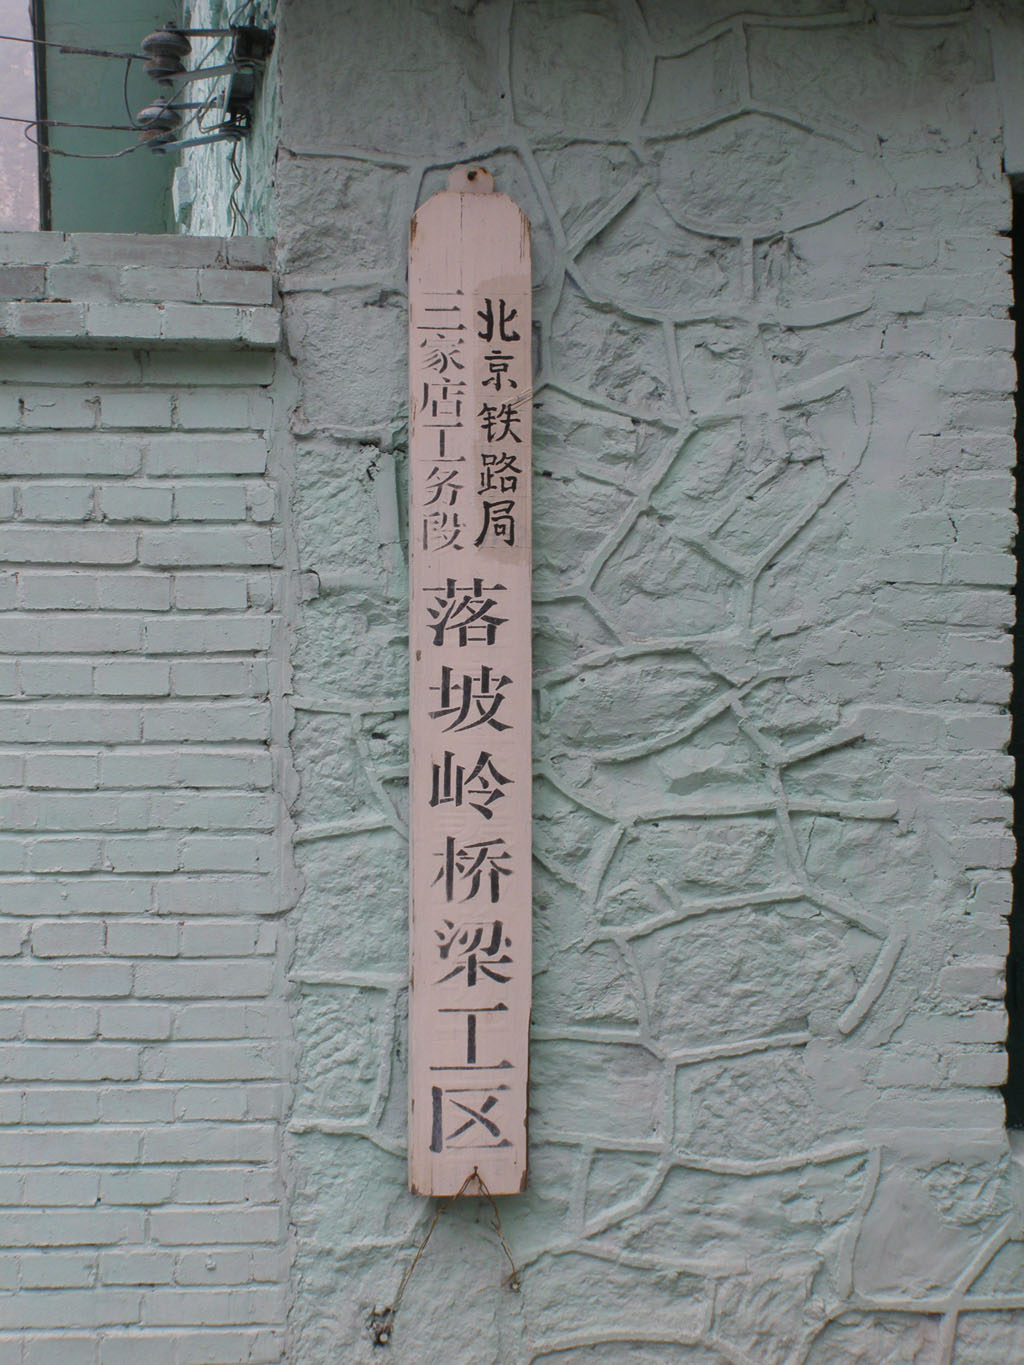 北京铁路局
三家店工务段
落坡岭桥梁工区